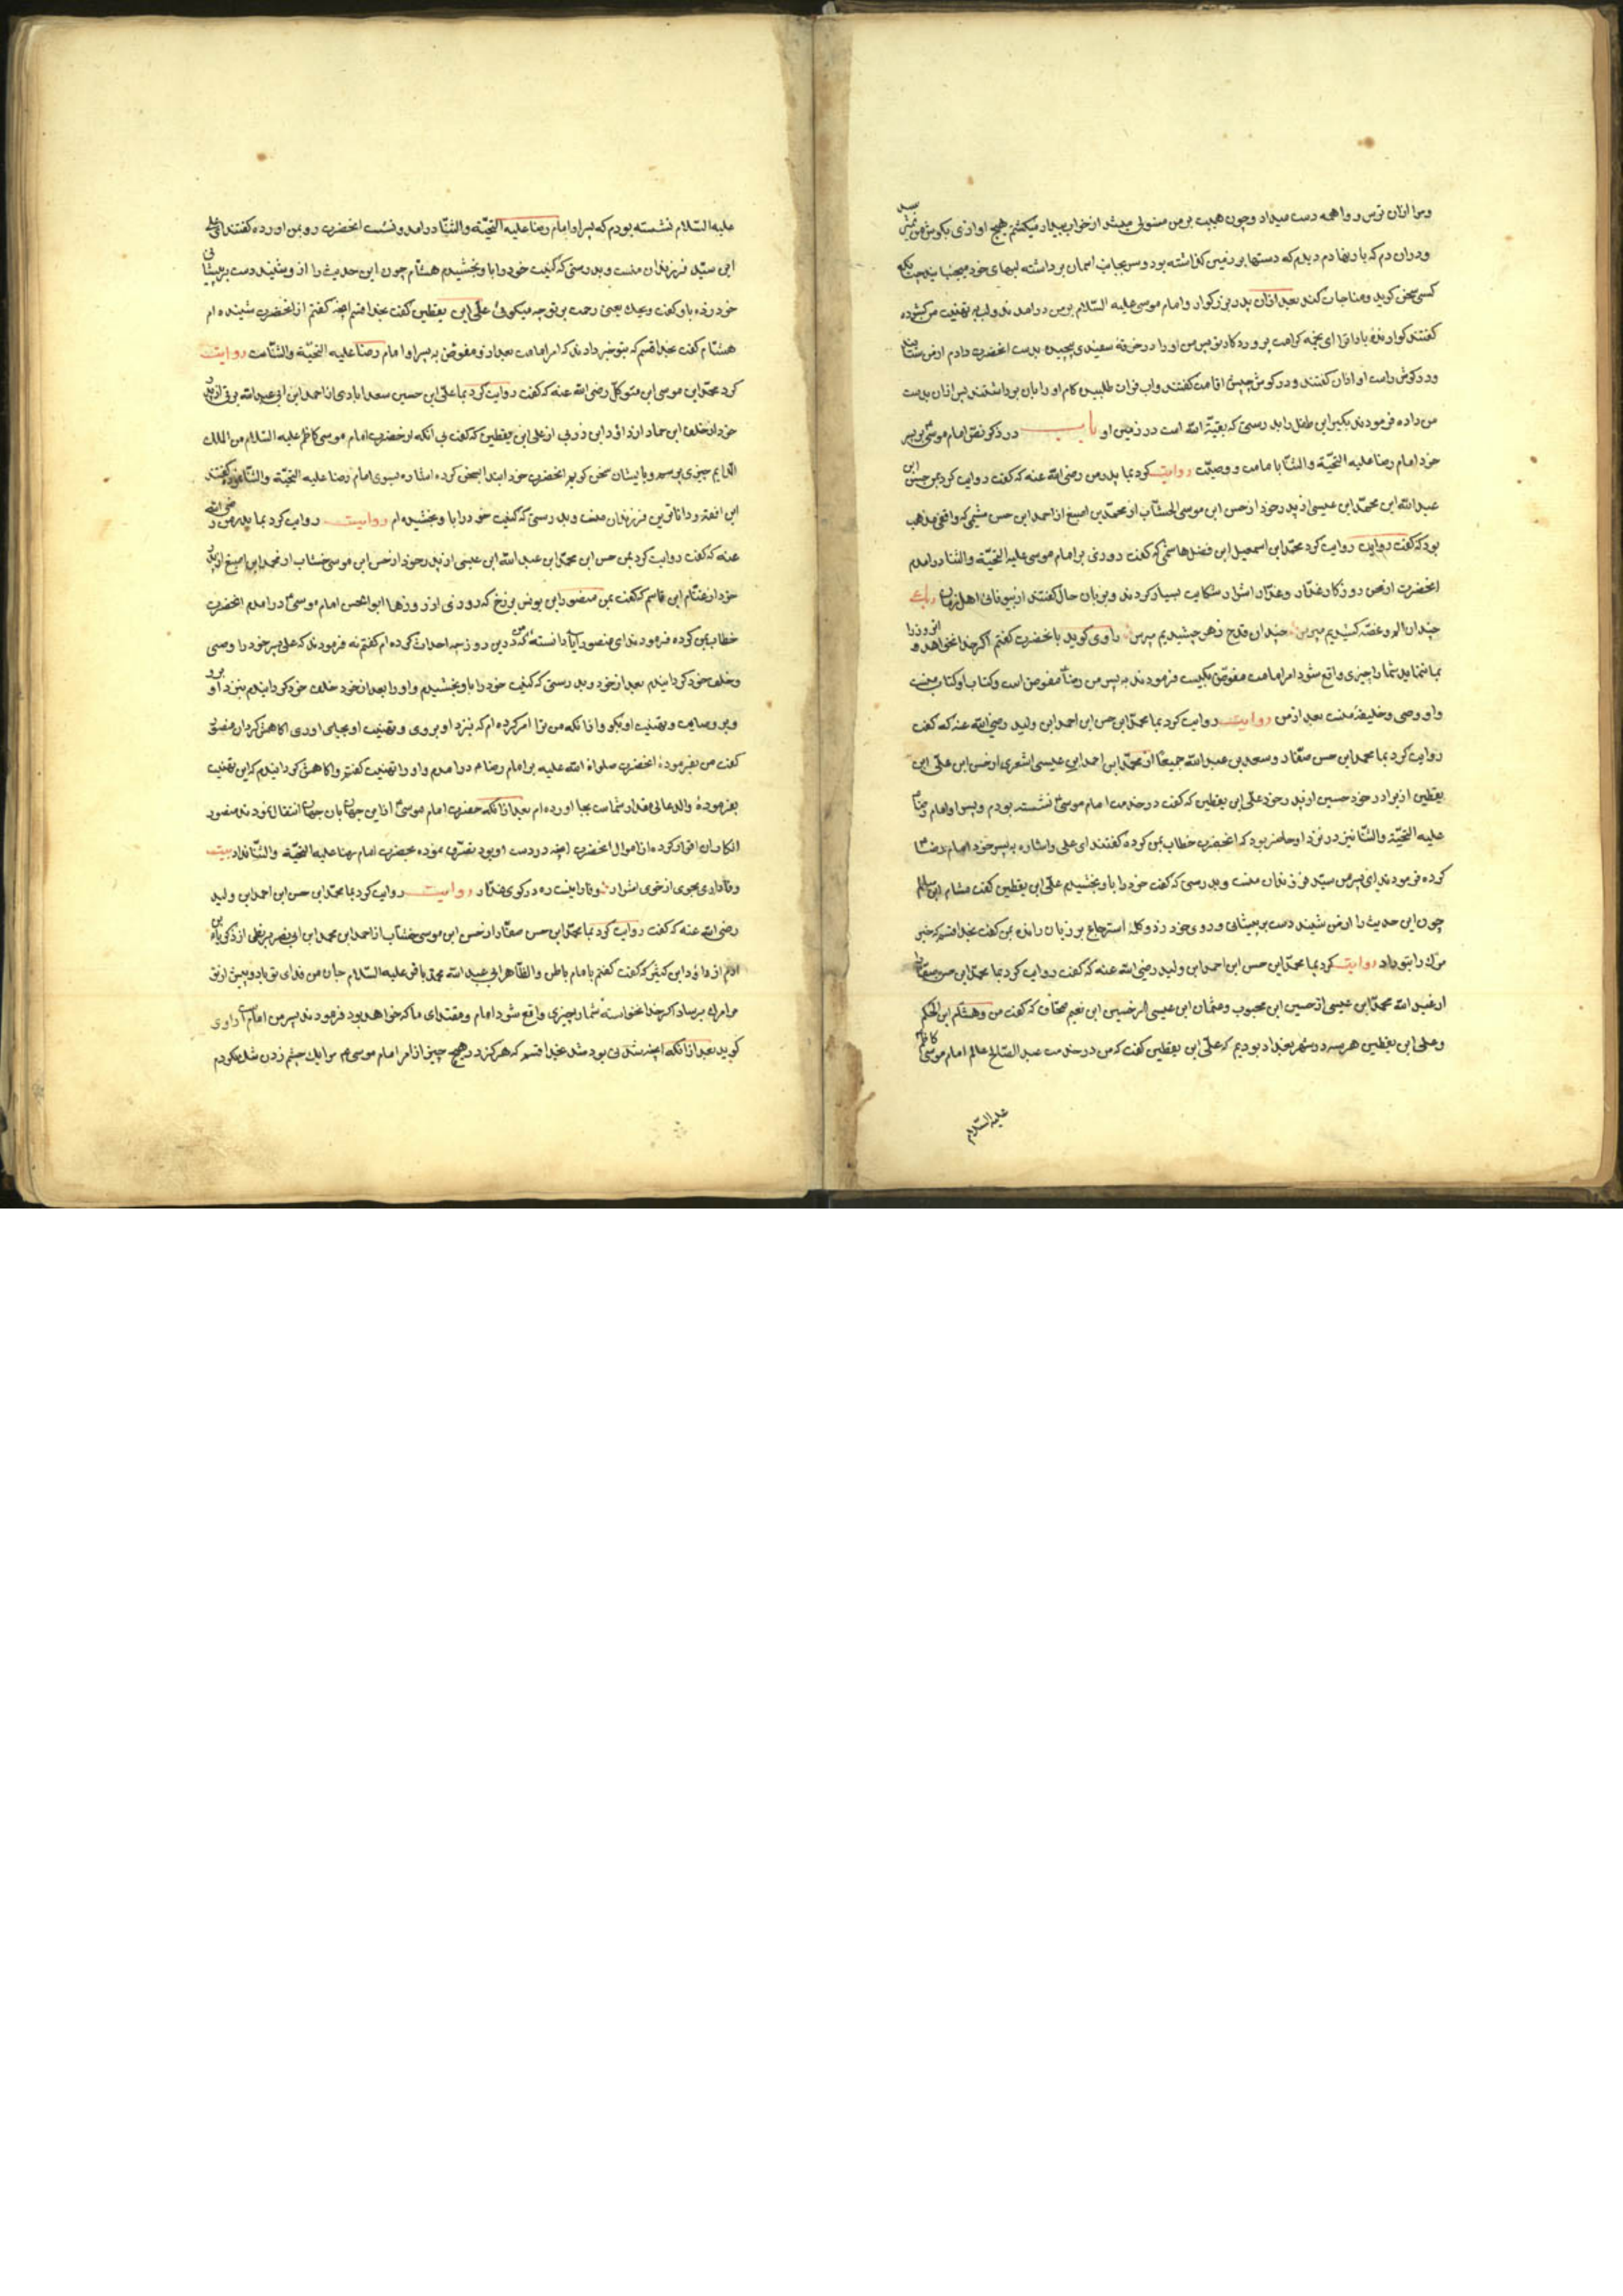 ومرا ازان ترس و واهمه دست میداد و چون هیبت بر من مستولی میشد از خواب بیدار میگشتم هیچ اوازی بکوش من نمیرسید
و دران دم که بار نهادم دیدم که دستها بر زمین گذاشته بود و سر بجانب اسمان برداشته لبهای خود میجنبانید چنانکه
کسی سخن کوید و مناجات کند بعد ازان پدر بزرکوار او امام موسی علیه السّلام بر من درامدند و لب به تهنیت من کشوده
گفتند کوارنده باد ترا ای نجمه کرامت پروردکار تو پس من او را در خرقهٔ سفیدی پیچیده بدست انحضرت دادم از من ستانیدند
و در کوش راست او اذان گفتند و در کوش چپش اقامت گفتند و اب فرات طلبیده کام او را بان برداشتند پس ازان بدست
من داده فرمودند بکیر این طفل را بدرستی که بقیّة الله است در زمین او باب در ذکر نصّ امام موسی بر پسر
خود امام رضا علیه التحیّة والثنا بامامت و وصیّت روایت کرد بما پدر من رضی الله عنه که گفت روایت کرد بمن حسن ابن
عبدالله ابن محمّد ابن عیسی از پدر خود از حسن ابن موسی الخشّاب از محمّد بن اصبغ از احمد ابن حسن میثمی که واقفی مذهب
بود که گفت روایت روایت کرد محمّد ابن اسمعیل ابن فضل هاشمی که گفت روزی بر امام موسی علیه التحیّة والثنا درامدم
انحضرت از نحس روزکار غدّار و عدّار اشرار شکایت بسیار کردند و بزبان حال گفتند از بیوفائی اهل زمان رباعی
چندان الم و غصّه کشیدیم مپرس چندان قدح زهر چشیدیم مپرس راوی کوید بانحضرت گفتم اکر خدا نخواهد و انروز را
بما ننماید شما را چیزی واقع شود امر امامت مفوّض بکیست فرمودند به پسر من رضا مفوض است و کتاب او کتاب منست
و او وصی و خلیفهٔ منست بعد از من روایت روایت کرد بما محمّد ابن حسن ابن احمد ابن ولید رضی الله عنه که گفت
روایت کرد بما محمد ابن حسن صفّار و سعد بن عبدالله جمیعا از محمّد ابن احمد ابن عیسی اشعری از حسن ابن علی ابن
یقطین از برادر خود حسین از پدر خود علی ابن یقطین که گفت در خدمت امام موسی نشسته بودم و پسر او امام رضا
علیه التحیّة والثنا نیز در نزد او حاضر بود که انحضرت خطاب بمن کرده گفتند ای علی و اشاره به پسر خود امام رضا
کرده فرمودند این پسر من سیّد فرزندان منست و بدرستی که کنیت خود را باو بخشیدم علی ابن یقطین گفت هشام ابن سالم
چون این حدیث را از من شنید دست بر پیشانی و روی خود زد و کلمهٔ استرجاع بر زبان رانده بمن گفت بخدا قسم که خبر
مرک را بتو داد روایت کرد بما محمّد ابن حسن ابن احمد ابن ولید رضی الله عنه که گفت روایت کرد بما محمّد ابن حسن صفّار
از عبدالله محمّد ابن عیسی از حسین ابن محبوب و عثمان ابن عیسی از حسین ابن نعیم صحّاف که گفت من و هشام ابن الحکم
و علی ابن یقطین هر سه در شهر بغداد بودیم که علی ابن یقطین گفت که من در خدمت عبد الصّالح عالم امام موسی کاظم
علیه السّلام
علیه السّلام نشسته بودم که پسر او امام رضا علیه التحیّة والثنا درامد و نشست انحضرت رو بمن اورده گفتند ای علی
این سیّد فرزندان منست و بدرستی که کنیت خود را باو بخشیدم هشام چون این حدیث را از و شنید دست بر پیشانی
خود زده باو گفت ویحک یعنی رحمت بر تو چه میکوئی علی ابن یقطین گفت بخدا قسم انچه گفتم از انحضرت شنیده ام
هشام گفت بخدا قسم که بتو خبر دادند که امر امامت بعد از و مفوّض به پسر او امام رضا علیه التحیّة والثناست روایت
کرد محمّد ابن موسی ابن متوکّل رضی الله عنه که گفت روایت کرد بما علی ابن حسین سعدابادی از احمد ابن ابی عبدالله برقی از پدر
خود از خلف ابن حماد از داؤد ابن زربی از علی ابن یقطین که گفت بی انکه از حضرت امام موسی کاظم علیه السّلام من الملک
العلّام چیزی پرسم و با یشان سخن کویم انحضرت خود ابتدا بسخن کرده اشاره بسوی امام رضا علیه التحیّة والثنا نموده گفتند
این افقه و داناترین فرزندان منست و بدرستی که کنیت خود را باو بخشیده ام روایت روایت کرد بما پدر من رضی الله
عنه که گفت روایت کرد بمن حسن ابن محمّد ابن عبدالله ابن عیسی از پدر خود از حسن ابن موسی خشاب از محمد ابن اصبغ از پدر
خود از غنّام ابن قاسم که گفت بمن منصور ابن یونس بزرخ که روزی از روزها ابو الحسن امام موسی درامدم انحضرت
خطاب بمن کرده فرمودند ای منصور ایا دانستهٔ که من درین روز چه احداث کرده ام گفتم نه فرمودند که علی پسر خود را وصی
و خلف خود کردانیدم بعد از خود و بدرستی که کنیت خود را باو بخشیدم و او را بعد از خود خلف خود کردانیدم بنزد او برو
و بر وصایت و تهنیت او بکو و اذانکه من ترا امر کرده ام که بنزد او بروی و تهنیت او بجای اوری اکاهش کردان منصور
گفت من بفرمودهٔ انحضرت صلواة الله علیه بر امام رضا م درامدم و او را تهنیت گفتم و اکاهش کردانیدم که این تهنیت
بفرمودهٔ والد عالیمقدار شماست بجا اورده ام بعد ازانکه حضرت امام موسی ازین جهان بان جهان انتقال نمودند منصور
انکار ان اقرار کرده از اموال انحضرت انچه در دست او بود تصرّف نموده بحضرت امام رضا علیه التحیّة والثنا نداد بیت
وفاداری مجوی از خوی اشرار وفا را نیست ره در کوی غدّار روایت روایت کرد بما محمّد ابن حسن ابن احمد ابن ولید
رضی الله عنه که گفت روایت کرد بما محمّد ابن حسن صفّار از حسن ابن موسی خشّاب از احمد ابن محمد ابن ابی نصر بزنطی از زکریا ابن
ادم از داؤد ابن کثیر که گفت گفتم بامام باطن والظّاهر ابی عبدالله محمد باقر علیه السّلام جان من فدای تو باد و پیش از تو
مرا مرک برساد اکر خدا نخواسته شما را چیزی واقع شود امام و مقتدای ما که خواهد بود فرمودند پسر من امام موسی راوی
کوید بعد ازانکه انچه شدنی بود شد بخدا قسم که هرکز در هیچ چیز از امر امام موسی م مرا یک چشم زدن شک نکردم